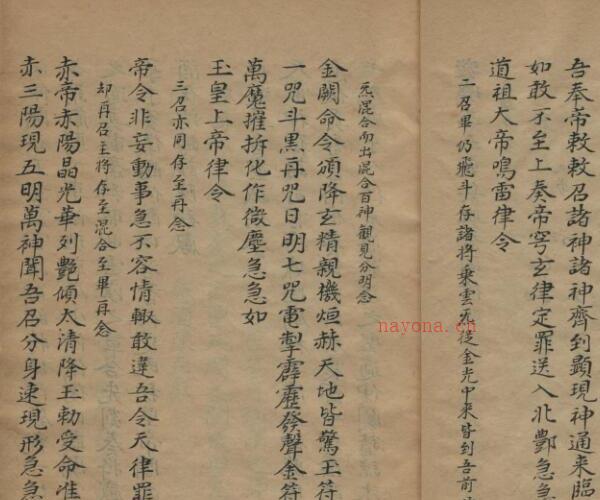 吾奉帝敕敕召諸神諸神齊到顕現神通来臨
如敢不至上奏帝穹玄律定罪送入北酆急急
道祖大帝鳴雷律令
二召畢仍飛斗存諸將乘雲炁從金光中来皆到吾前
炁混合而出混合百神觀見分明念
金闕命令頒降玄精親機烜赫天地皆驚玉符
一咒斗黑再咒日明七咒電掣霹靂發聲金符
萬魔摧拆化作微塵急急如
玉皇上帝律令
三召亦同存至再念
帝令非妄動事急不容情輙敢違吾令天律罪
却再召主將存至混合至畢再念
赤帝赤陽晶光華列艷傾太清降玉勅受命准
赤三陽現五明萬神聞吾召分身速現形急急
nayona.cn